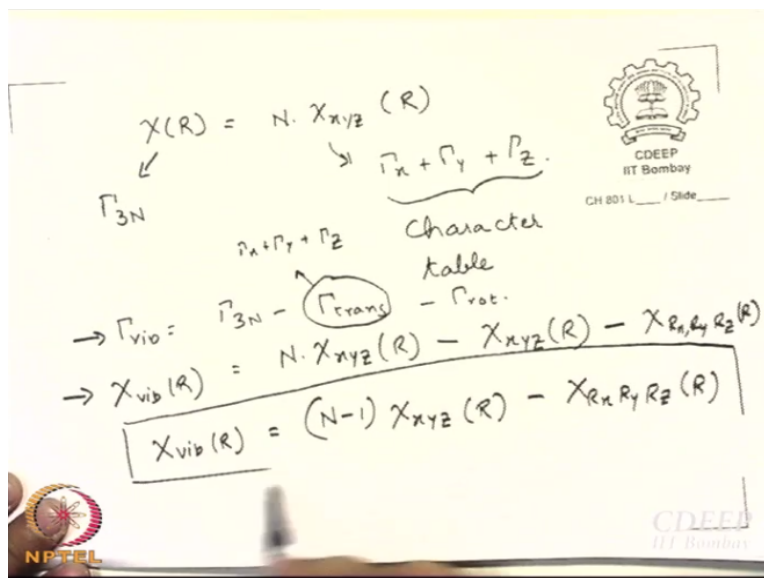 χ(R) = N. χxyz (R)
Γ3N
Γx + Γy + Γz.
CDEEP
IIT Bombay
CH 801 L____ / Slide____
Γx+Γy+Γz
Character
table
→ Γvib = Γ3N - Γtrans - Γrot.
→ χvib(R) = N. χxyz(R) - χxyz(R) - χRx,Ry Rz(R)
χvib(R) = (N-1) χxyz (R) - χRx Ry Rz (R)
NPTEL
CDEEP
IIT Bombay